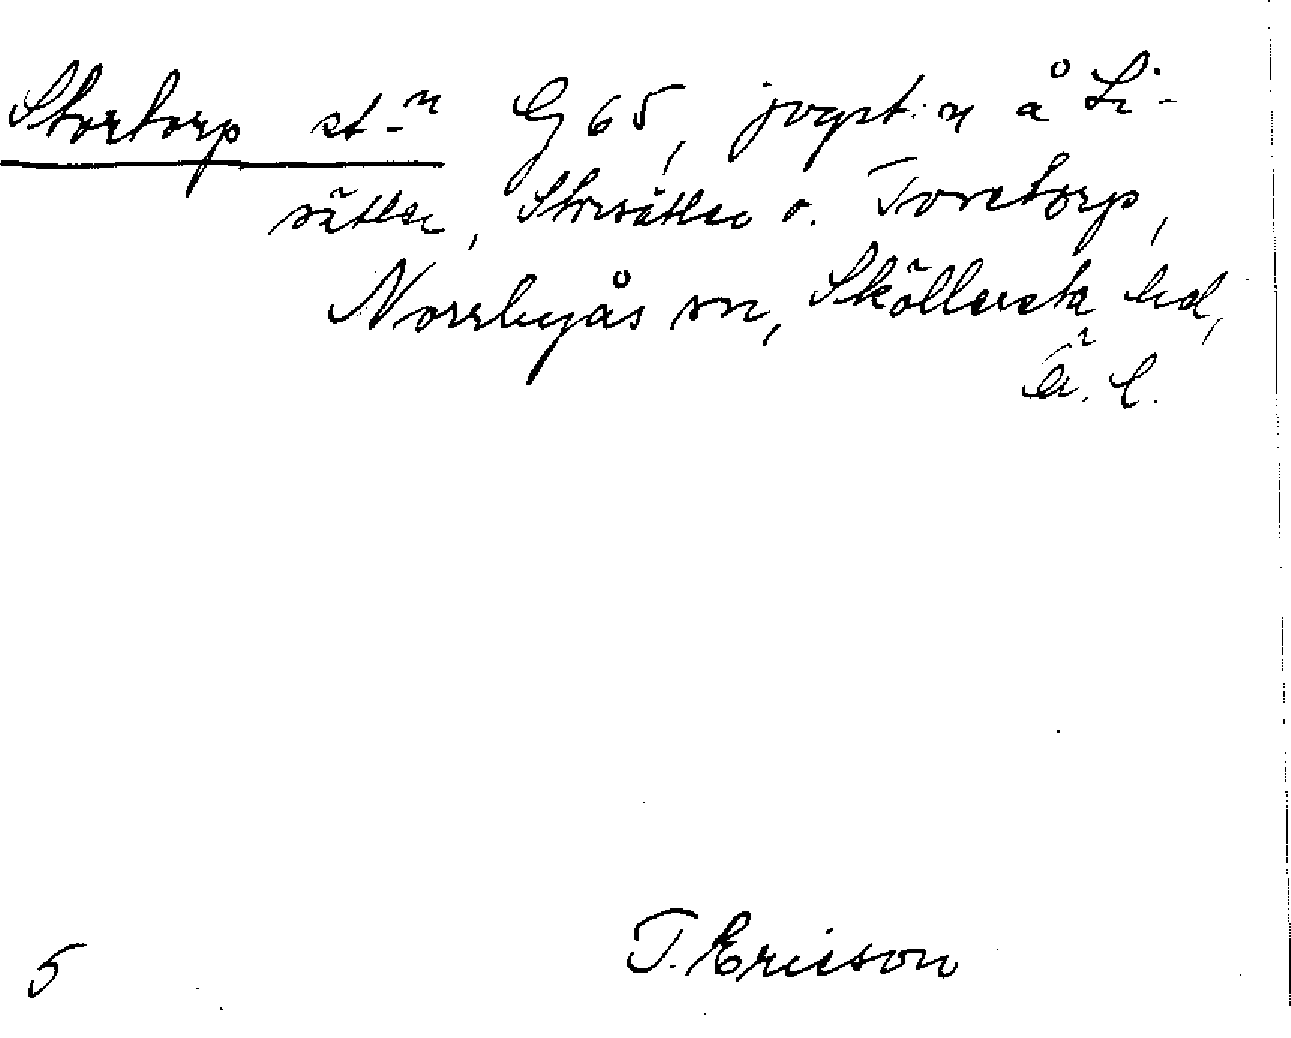 Stortorp st-n G 65, jvgst:n å Li-
sätter, Storsätter o. Torstorp,
Norrbyås sn, Sköllersta hd,
Ö. l.
T. Ericson
5